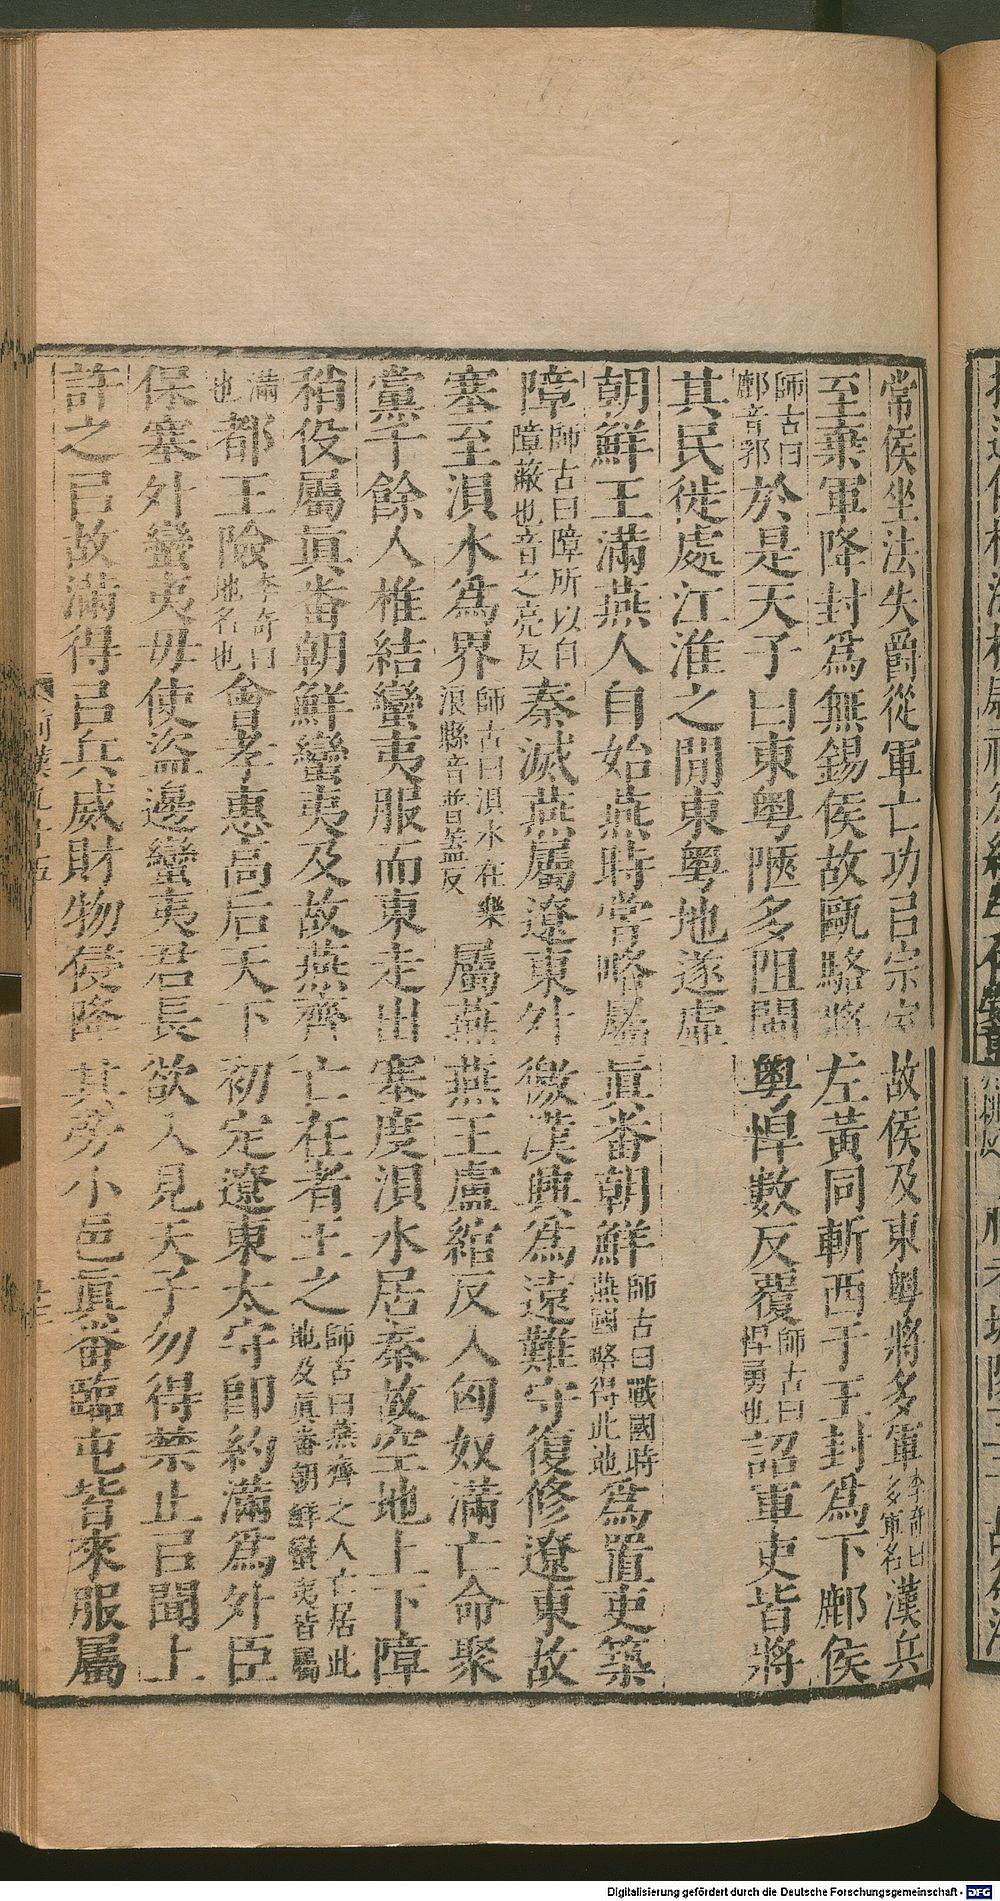 常侯坐法失爵從軍亡功㠯宗室故侯及東粵將多軍李奇曰多軍名漢兵
至棄軍降封爲無錫侯故甌駱將左黃同斬西于王封爲下鄜侯
師古曰鄜音郛於是天子曰東粵陿多阻閩粵悍數反覆師古曰悍勇也詔軍吏皆將
其民徙處江淮之閒東粵地遂虛
朝鮮王滿燕人自始燕時嘗略屬眞番朝鮮師古曰戰國時燕國略得此地爲置吏築
障師古曰障所以自障蔽也音之亮反秦滅燕屬遼東外徼漢興爲遠難守復修遼東故
塞至浿水爲界師古曰浿水在樂浪縣音普蓋反屬燕燕王盧綰反入匈奴滿亡命聚
黨千餘人椎結蠻夷服而東走出塞度浿水居秦故空地上下障
稍役屬眞番朝鮮蠻夷及故燕齊亡在者王之師古曰燕齊之人亡居此地及眞番朝鮮蠻夷皆屬
滿也都王險李奇曰地名也會孝惠高后天下初定遼東太守卽約滿爲外臣
保塞外蠻夷毋使盜邊蠻夷君長欲入見天子勿得禁止㠯聞上
許之㠯故滿得㠯兵威財物侵降其旁小邑眞番臨屯皆來服屬
Digitalisierung gefördert durch die Deutsche Forschungsgemeinschaft - DFG